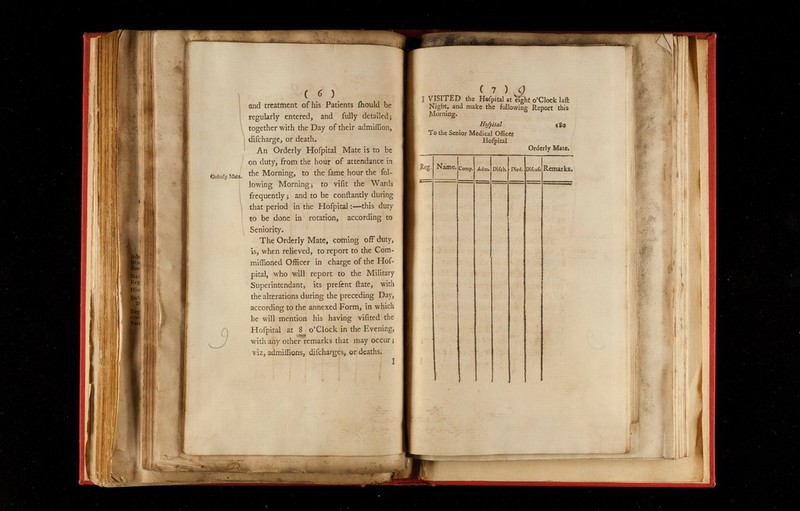 ( 6 )
and treatment of his Patients ſhould be
regularly entered, and fully detailed;
together with the Day of their admiſſion,
diſcharge, or death.
An Orderly Hoſpital Mate is to be
on duty, from the hour of attendance in
Orderly Mate.
the Morning, to the ſame hour the fol-
lowing Morning; to viſit the Wards
frequently; and to be conſtantly during
that period in the Hoſpital:—this duty
to be done in rotation, according to
Seniority.
The Orderly Mate, coming off duty,
is, when relieved, to report to the Com-
miſſioned Officer in charge of the Hoſ-
pital, who will report to the Military
Superintendant, its preſent ſtate, with
the alterations during the preceding Day,
according to the annexed Form, in which
he will mention his having viſited the
Hoſpital at 8 o'Clock in the Evening,
with any other remarks that may occur;
viz, admiſſions, diſcharges, or deaths.
I
( 7 )
I VISITED the Hoſpital at eight o'Clock laſt
Night, and make the following Report this
Morning.
Hoſpital 180
To the Senior Medical Officer
Hoſpital
Orderly Mate.
Reg. Name. Comp. Adm. Diſch. Died. Diſeaſe Remarks.